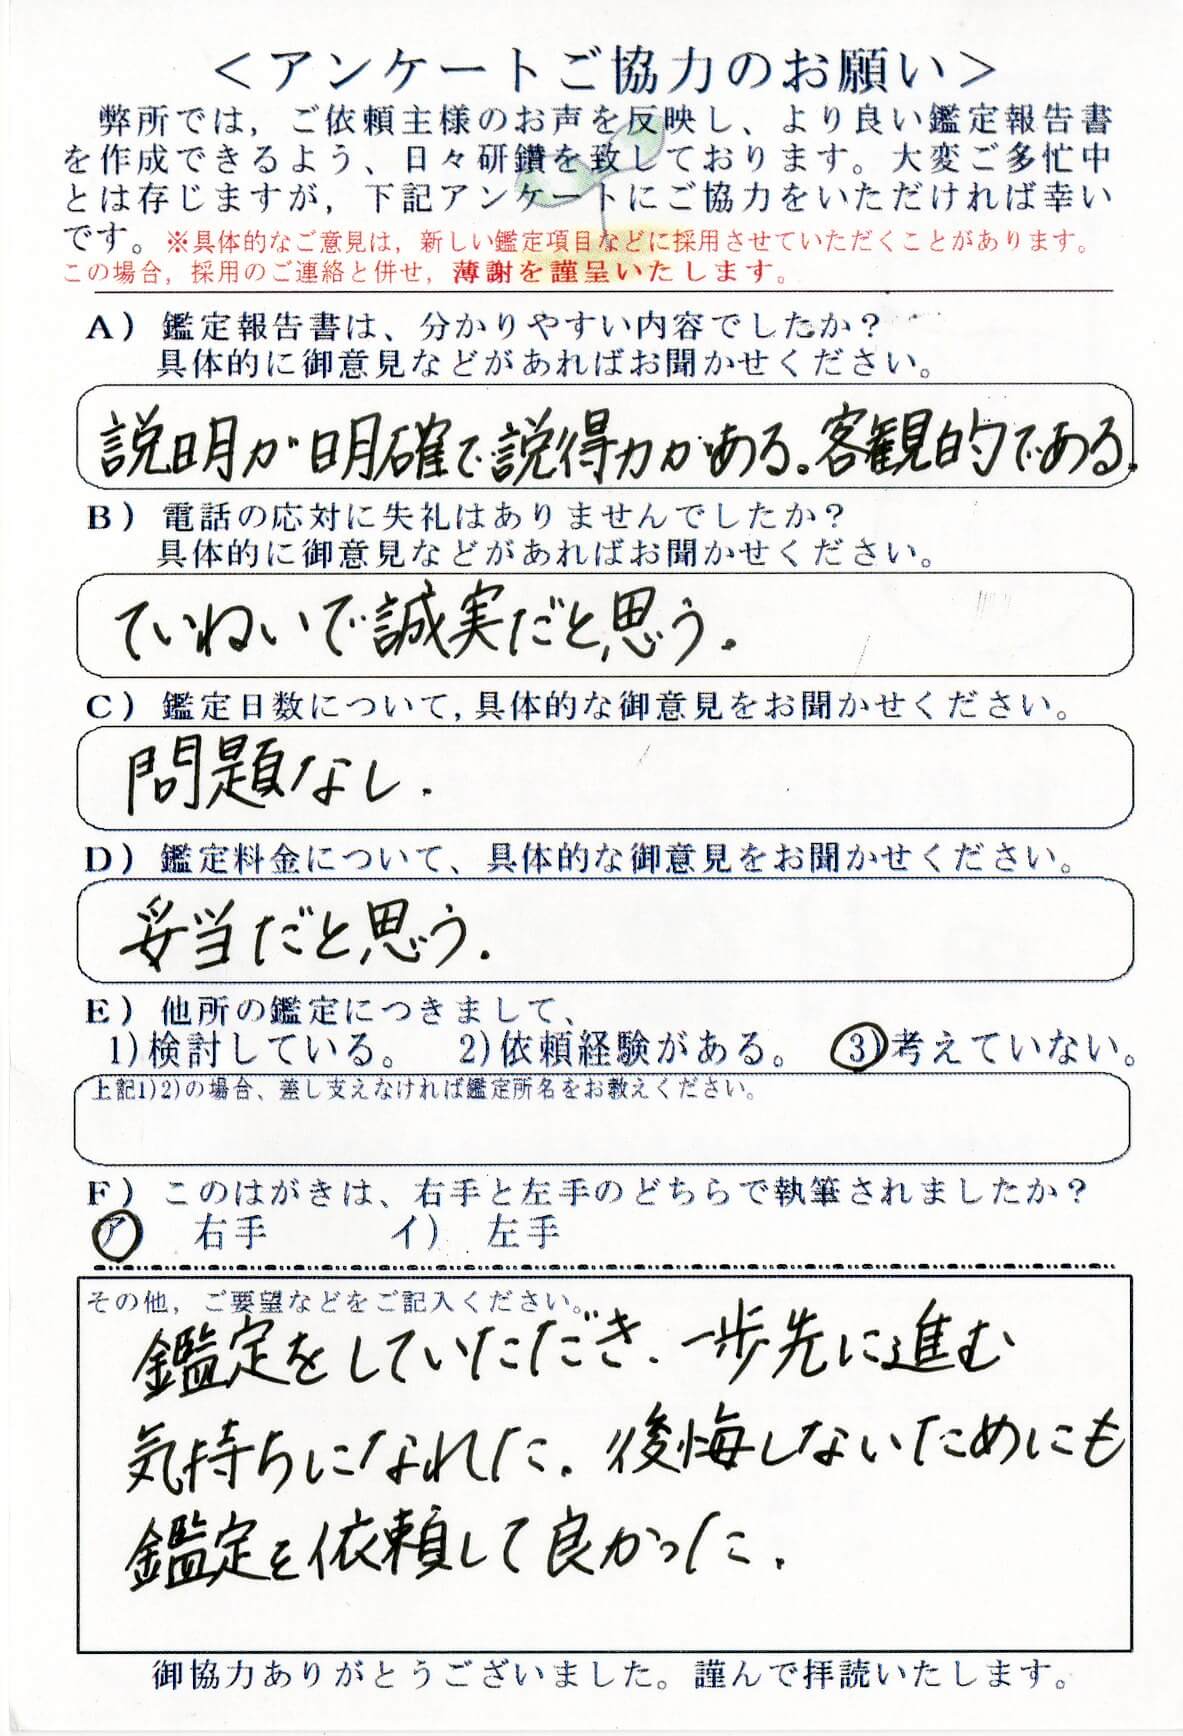 ＜アンケートご協力のお願い＞
弊所では，ご依頼主様のお声を反映し、より良い鑑定報告書
を作成できるよう、日々研鑽を致しております。大変ご多忙中
とは存じますが，下記アンケートにご協力をいただければ幸い
です。※具体的なご意見は，新しい鑑定項目などに採用させていただくことがあります。
この場合，採用のご連絡と併せ，薄謝を謹呈いたします。
A）鑑定報告書は、分かりやすい内容でしたか？
具体的に御意見などがあればお聞かせください。
説明が明確で説得力がある。客観的である.
B）電話の応対に失礼はありませんでしたか？
具体的に御意見などがあればお聞かせください。
ていねいで誠実だと思う.
C）鑑定日数について，具体的な御意見をお聞かせください。
問題なし.
D）鑑定料金について、具体的な御意見をお聞かせください。
妥当だと思う.
E）他所の鑑定につきまして、
1)検討している。 2)依頼経験がある。 3)考えていない。
上記1)2)の場合、差し支えなければ鑑定所名をお教えください。
F）このはがきは、右手と左手のどちらで執筆されましたか？
ア） 右手 イ） 左手
その他，ご要望などをご記入ください。
鑑定をしていただき.一歩先に進む
気持ちになれた.後悔しないためにも
鑑定を依頼して良かった.
御協力ありがとうございました。謹んで拝読いたします。